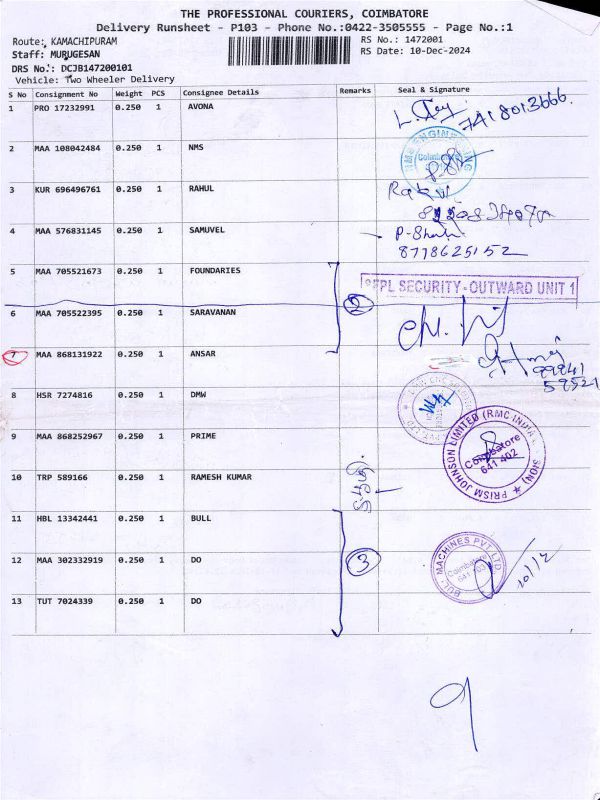 THE PROFESSIONAL COURIERS, COIMBATORE
Delivery Runsheet - P103 - Phone No.:0422-3505555 - Page No.:1
Route: KAMACHIPURAM
RS No.: 1472001
Staff: MURUGESAN
RS Date: 10-Dec-2024
DRS No.: DCJB147200101
Vehicle: Two Wheeler Delivery
S No Consignment No Weight PCS Consignee Details Remarks Seal & Signature
1 PRO 17232991 0.250 1 AVONA
7418013666.
2 MAA 108042484 0.250 1 NMS
NMS ENGINEERING
Coimbatore
3 KUR 696496761 0.250 1 RAHUL
4 MAA 576831145 0.250 1 SAMUVEL
8778625152
5 MAA 705521673 0.250 1 FOUNDARIES
SFPL SECURITY - OUTWARD UNIT 1
2
6 MAA 705522395 0.250 1 SARAVANAN
7 MAA 868131922 0.250 1 ANSAR
99941
59521
8 HSR 7274816 0.250 1 DMW
9 MAA 868252967 0.250 1 PRIME
PRISM JOHNSON LIMITED (RMC INDIA DIVISION)
Coimbatore
641 402
10 TRP 589166 0.250 1 RAMESH KUMAR
11 HBL 13342441 0.250 1 BULL
12 MAA 302332919 0.250 1 DO
3
BULL MACHINES PVT LTD.
Coimbatore
10/12
13 TUT 7024339 0.250 1 DO
9